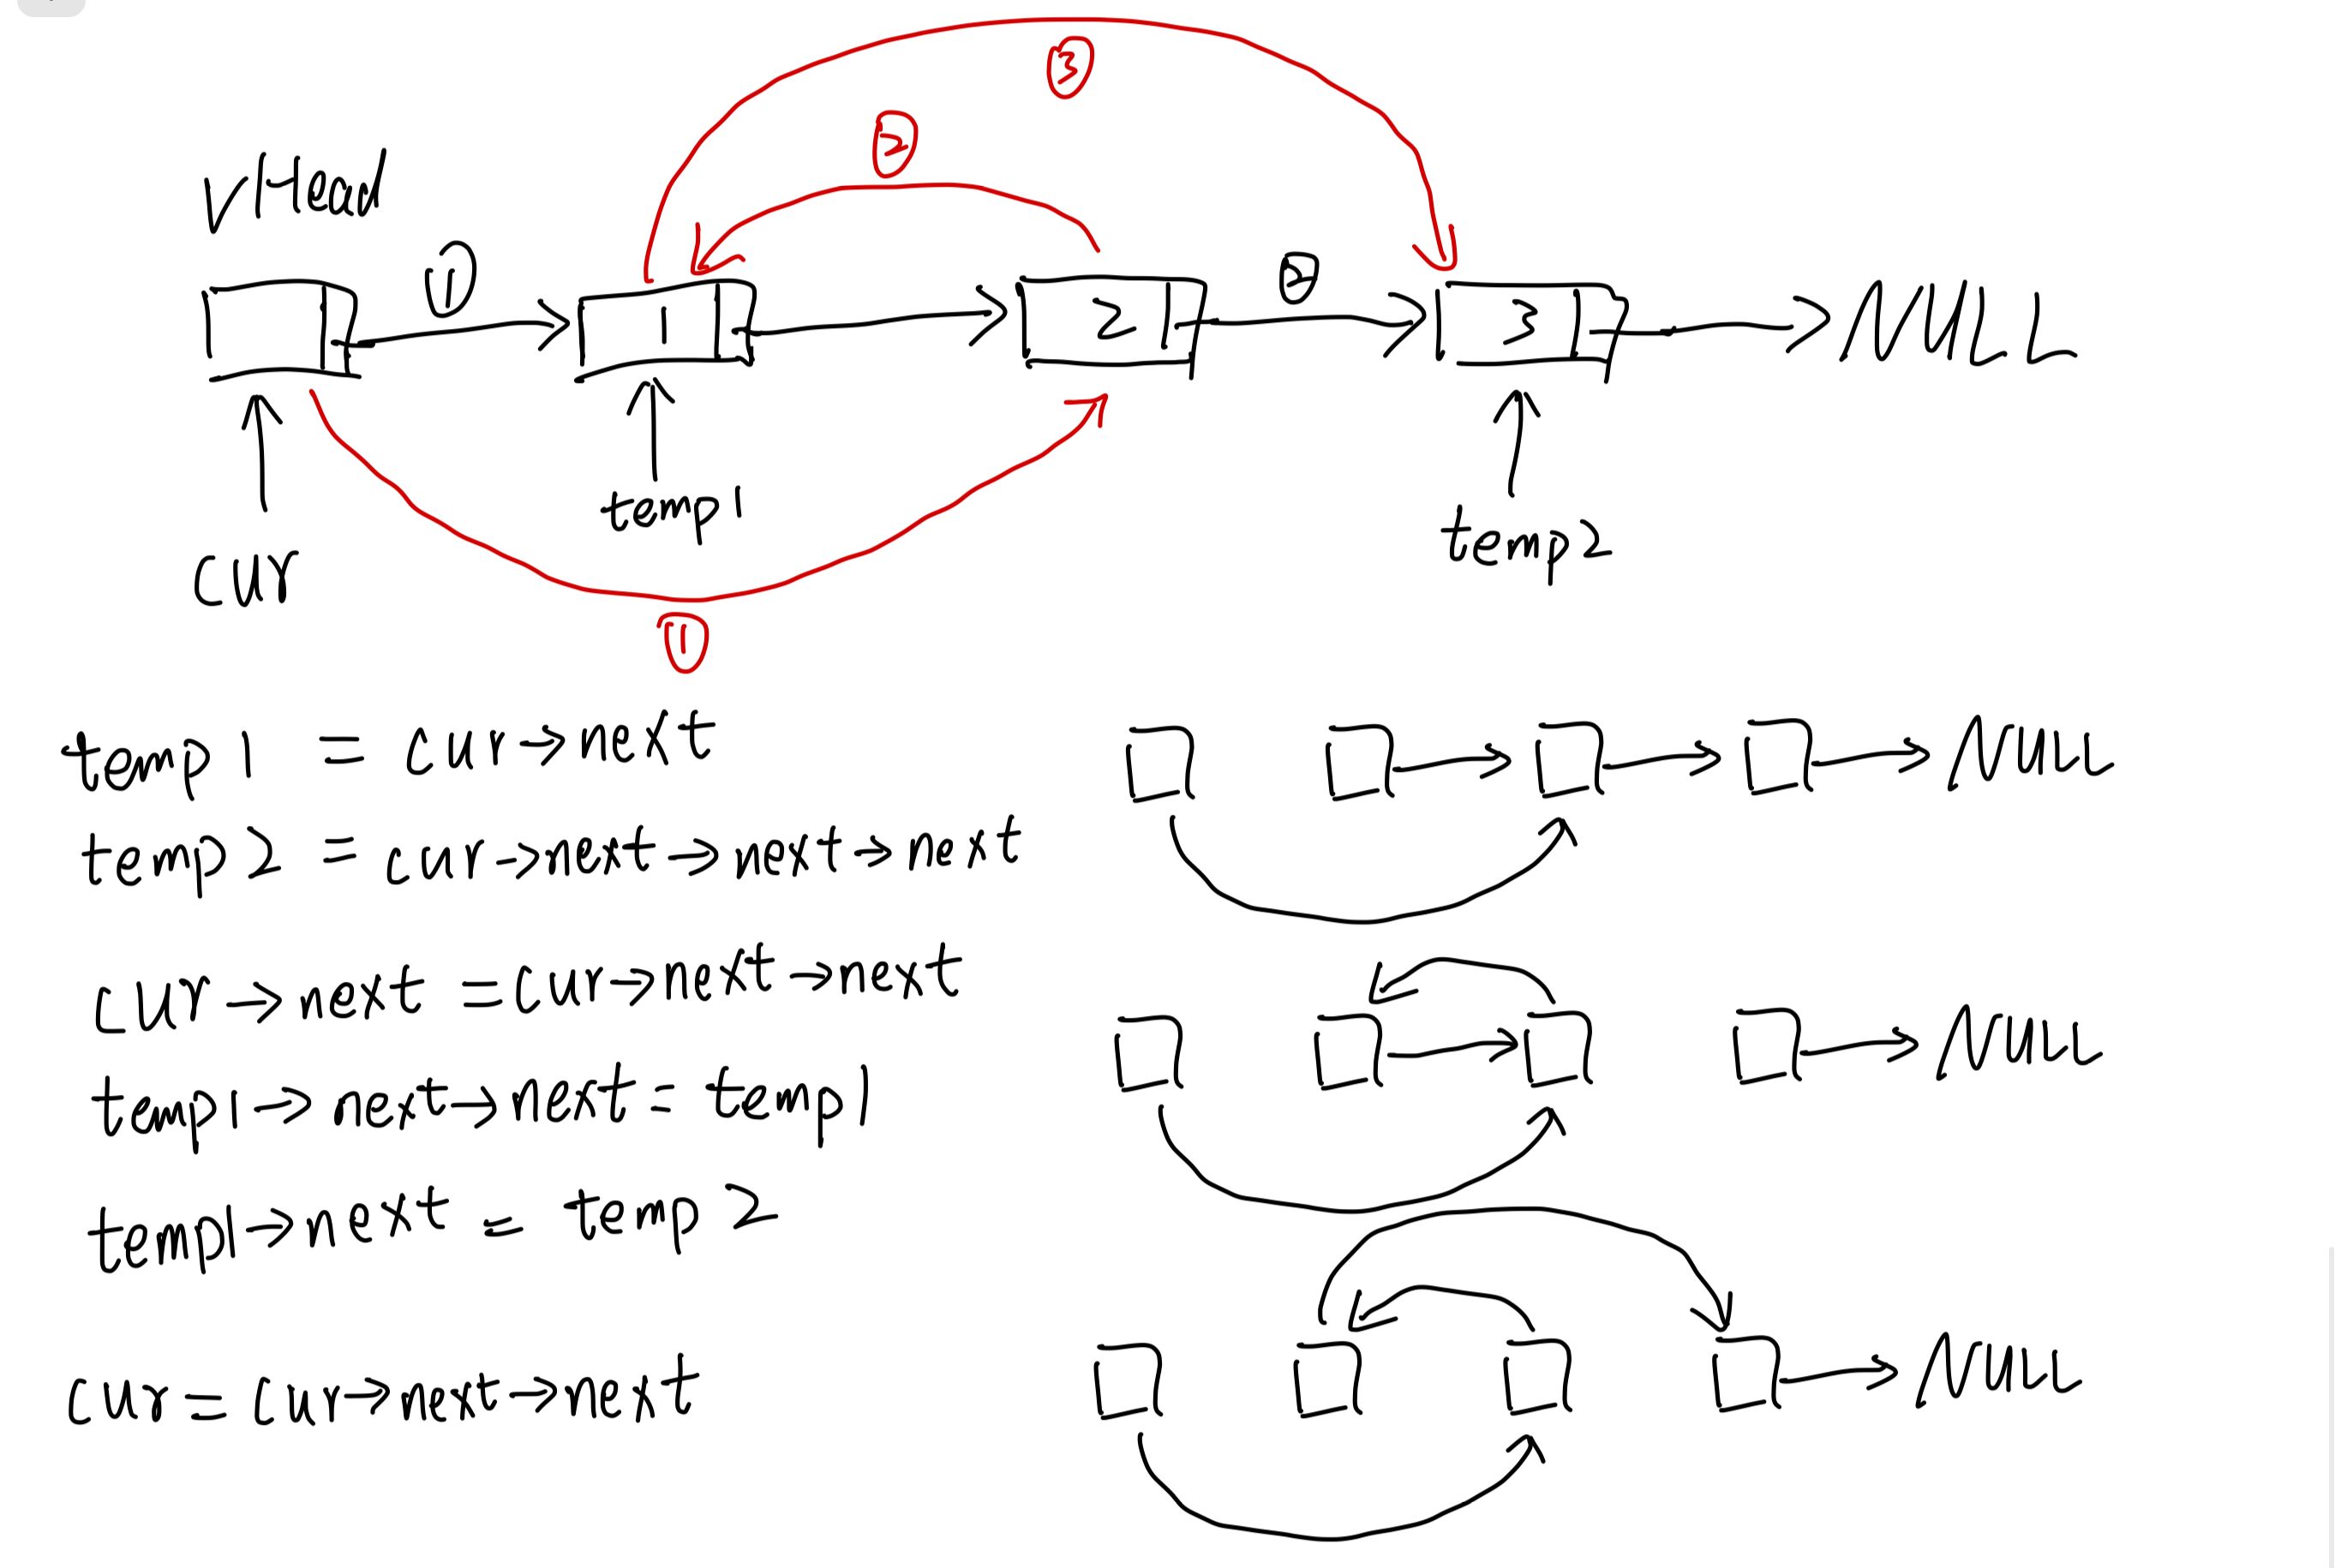 ③
②
vHead
① ②
1 2 3 NULL
temp1
temp2
cur
①
temp1 = cur->next
NULL
temp2 = cur->next->next->next
cur->next = cur->next->next
NULL
temp1->next->next = temp1
temp1->next = temp2
cur = cur->next->next
NULL